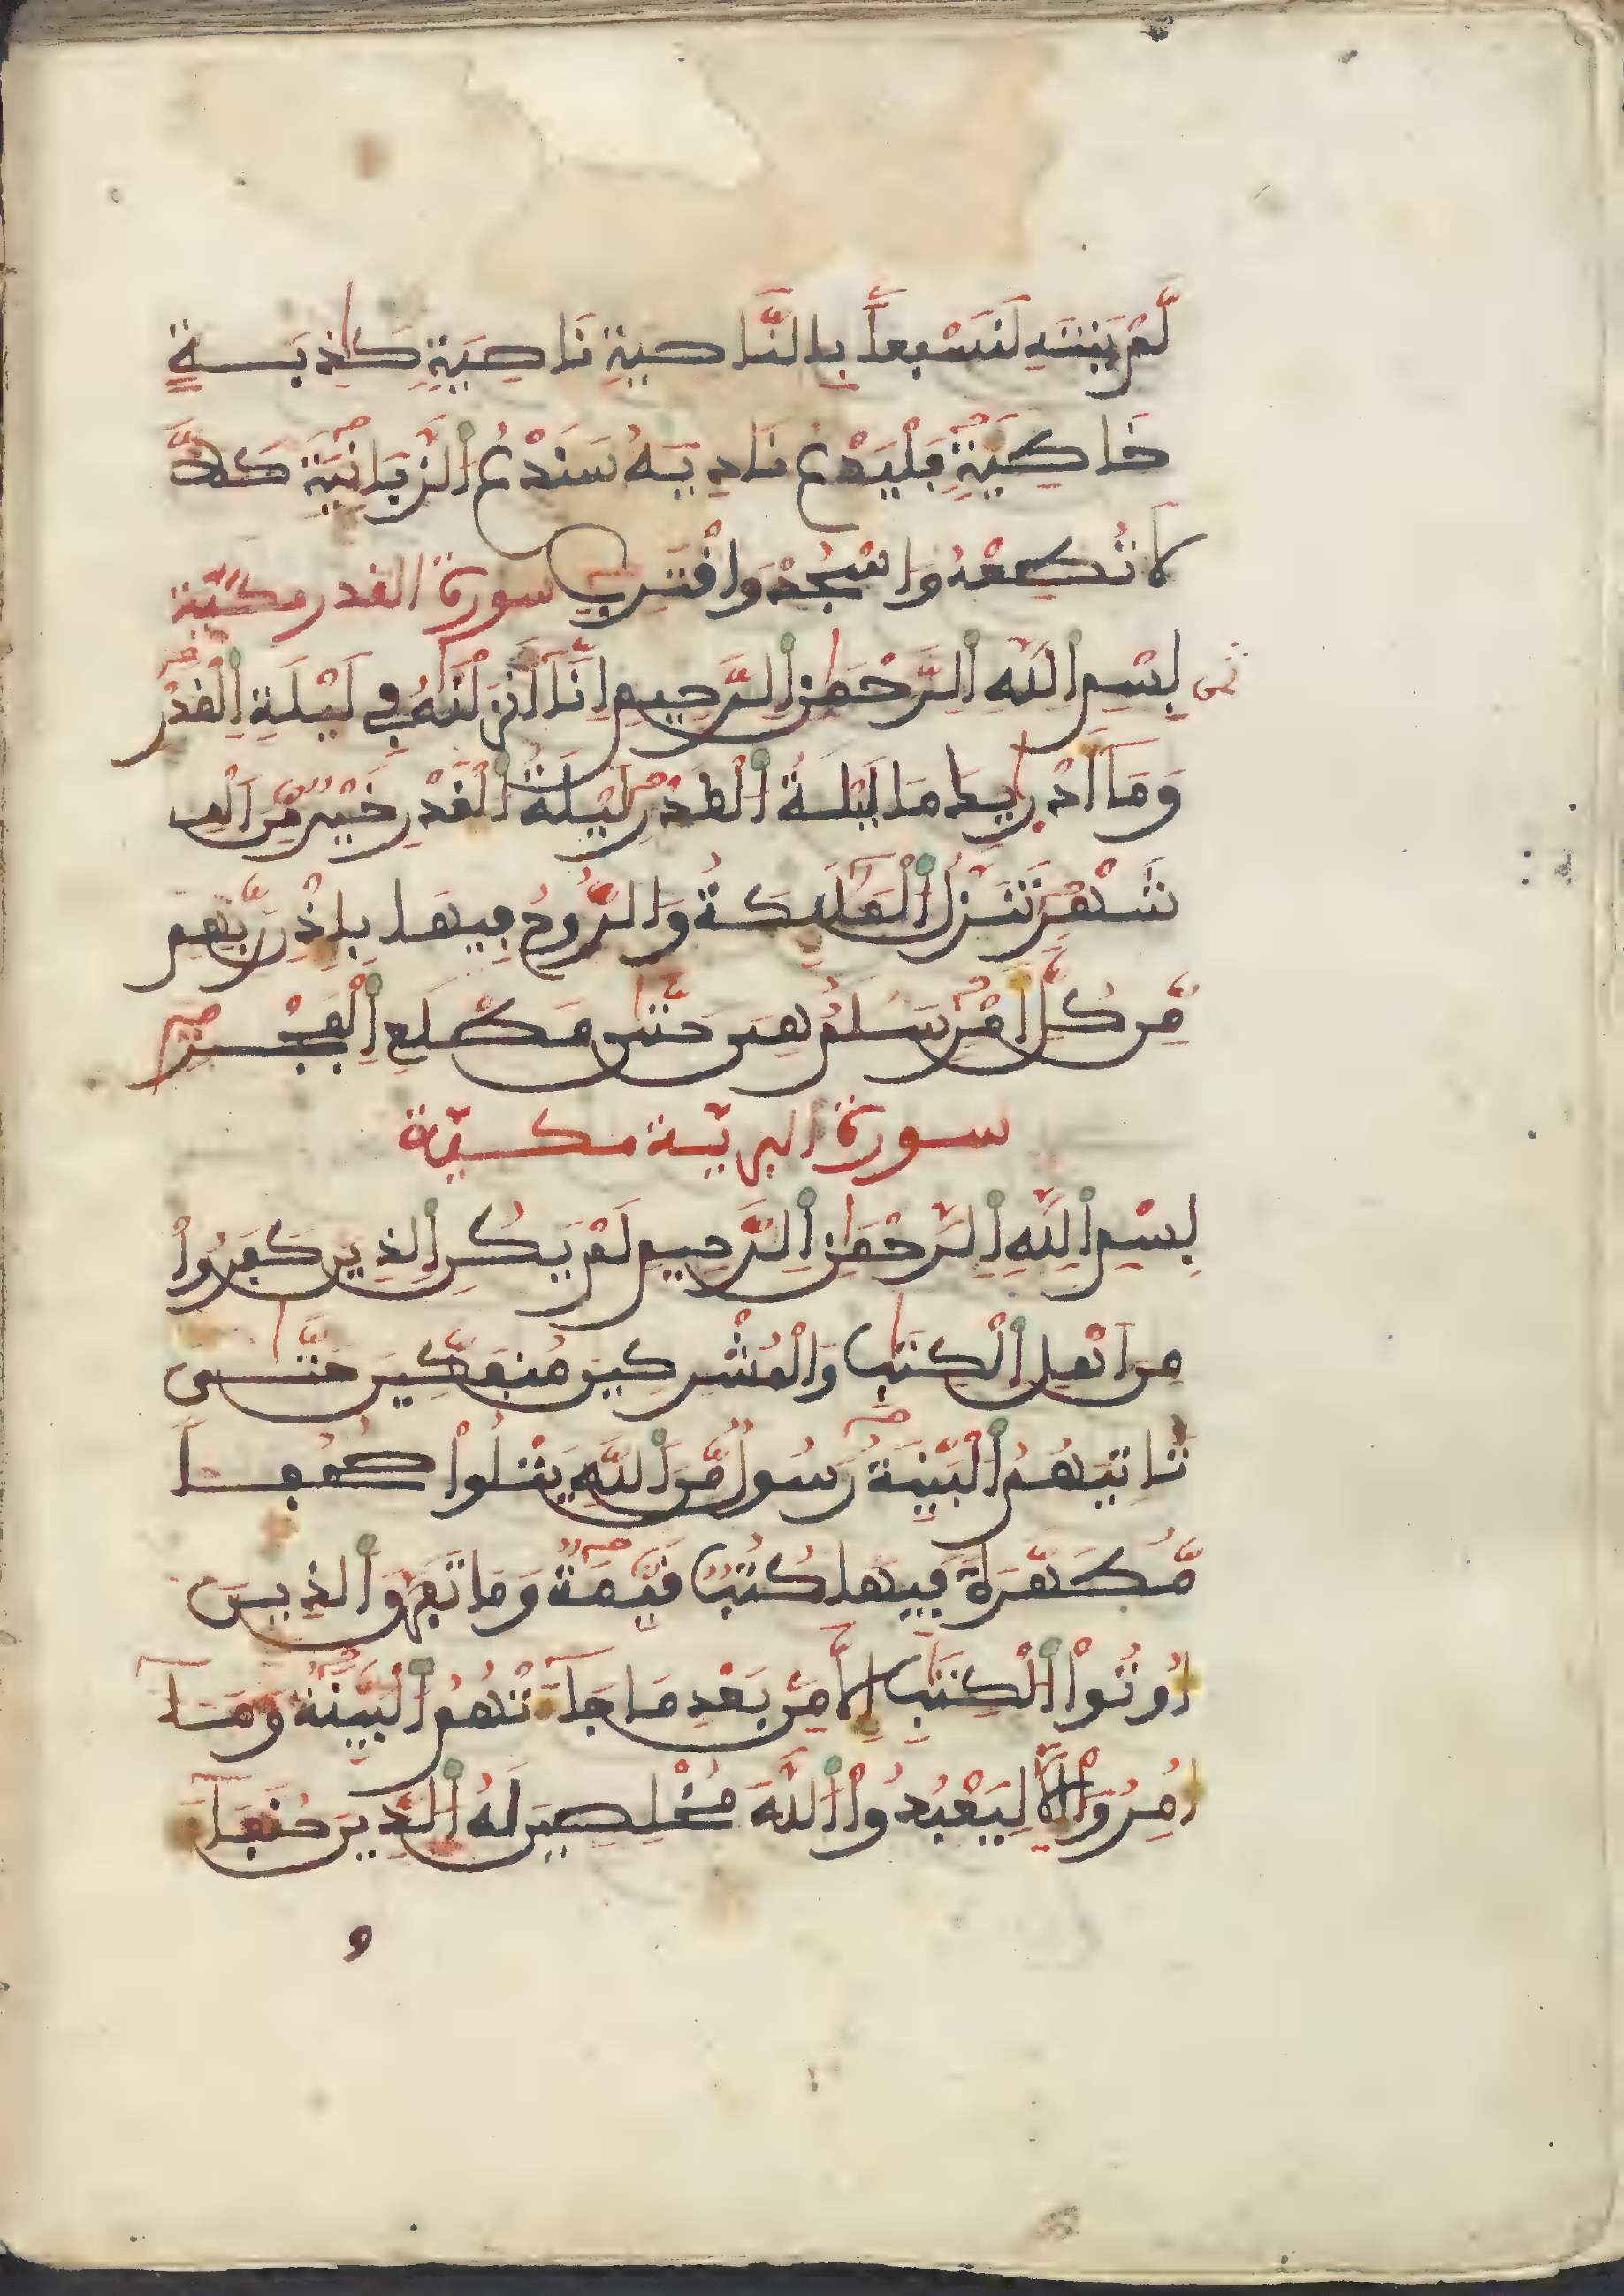 لَّمْ يَنتَهِ لَنَسْفَعاً بِالنَّاصِيَةِ نَاصِيَةٖ كَٰذِبَةٍ
خَاطِئَةٖ فَلْيَدْعُ نَادِيَهُۥ سَنَدْعُ اُلزَّبَانِيَةَ كَلَّا
لَا تُطِعْهُ وَاسْجُدْ وَاقْتَرِب سورة القدر مكية
بِسْمِ اِللَّهِ اِلرَّحْمَٰنِ اِلرَّحِيمِ إِنَّا أَنزَلْنَٰهُ فِي لَيْلَةِ اِلْقَدْرِ
وَمَا أَدْرَيٰكَ مَا لَيْلَةُ اُلْقَدْرِ لَيْلَةُ اُلْقَدْرِ خَيْرٌ مِّنَ اَلْفِ
شَهْرٖ تَنَزَّلُ اُلْمَلَٰئِكَةُ وَالرُّوحُ فِيهَا بِإِذْنِ رَبِّهِم
مِّن كُلِّ أَمْرٖ سَلَٰمٌ هِيَ حَتَّىٰ مَطْلَعِ اِلْفَجْرِ
سورة البرية مكية
بِسْمِ اِللَّهِ اِلرَّحْمَٰنِ اِلرَّحِيمِ لَمْ يَكُنِ اِلذِينَ كَفَرُواْ
مِنَ اَهْلِ اِلْكِتَٰبِ وَالْمُشْرِكِينَ مُنفَكِّينَ حَتَّىٰ
تَاتِيَهُمُ اُلْبَيِّنَةُ رَسُولٌ مِّنَ اَللَّهِ يَتْلُواْ صُحُفاً
مُّطَهَّرَةً فِيهَا كُتُبٌ قَيِّمَةٌ وَمَا تَفَرَّقَ اَلذِينَ
أُوتُواْ اُلْكِتَٰبَ إِلَّا مِنۢ بَعْدِ مَا جَآءَتْهُمُ اُلْبَيِّنَةُ وَمَآ
أُمِرُواْ إِلَّا لِيَعْبُدُواْ اُللَّهَ مُخْلِصِينَ لَهُ اُلدِّينَ حُنَفَآءَ
و